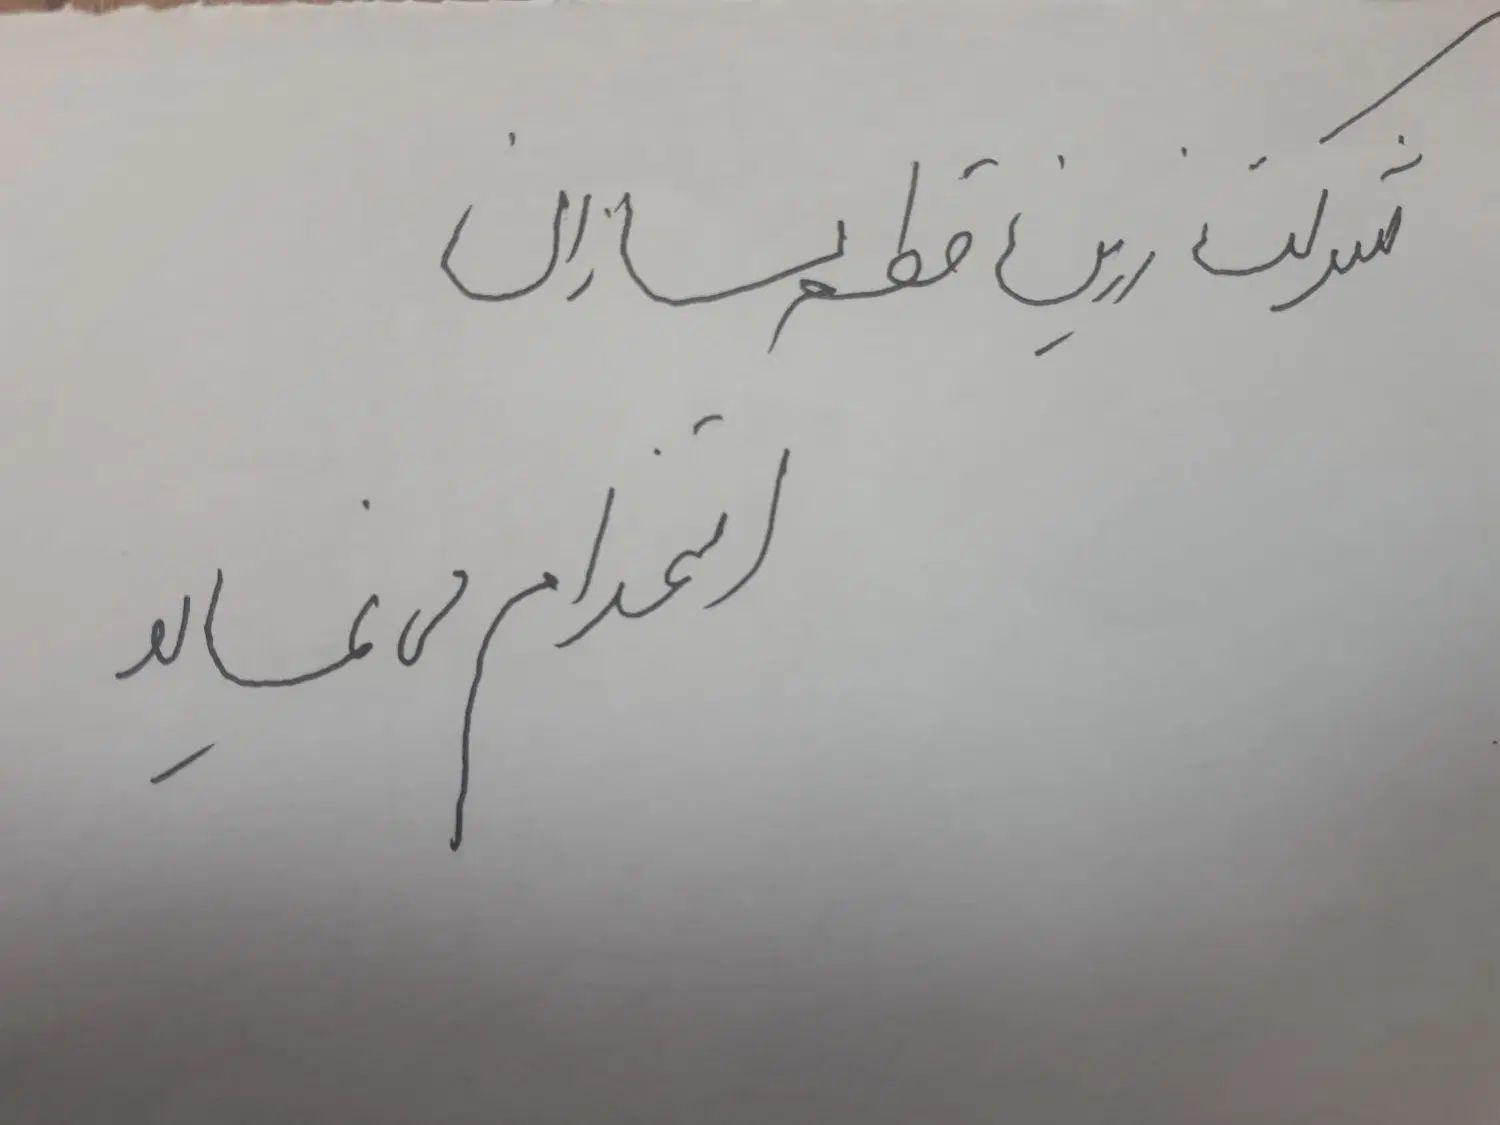 شرکت زرین قطعه سازان
استخدام می نماید